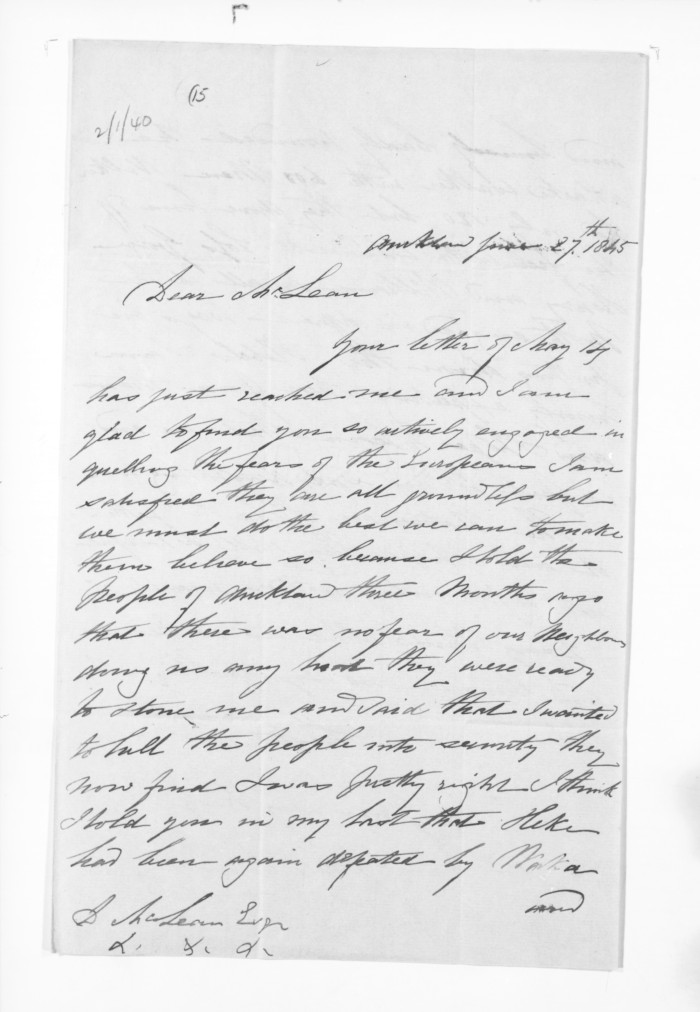 (15
2/1/40
Auckland June 27th 1845
Dear McLean
Your letter of May 14
has just reached me and I am
glad to find you so actively engaged in
quelling the fears of the Europeans I am
satisfied they are all groundless but
we must do the best we can to make
them believe so. because I told the
people of Auckland three Months ago
that there was no fear of our Neighbours
doing us any hurt they were ready
to stone me and said that I wanted
to lull the people into security they
now find I was pretty right I think
I told you in my last that Heke
had been again defeated by Waka
and
D McLean Esqr
&. &. &.